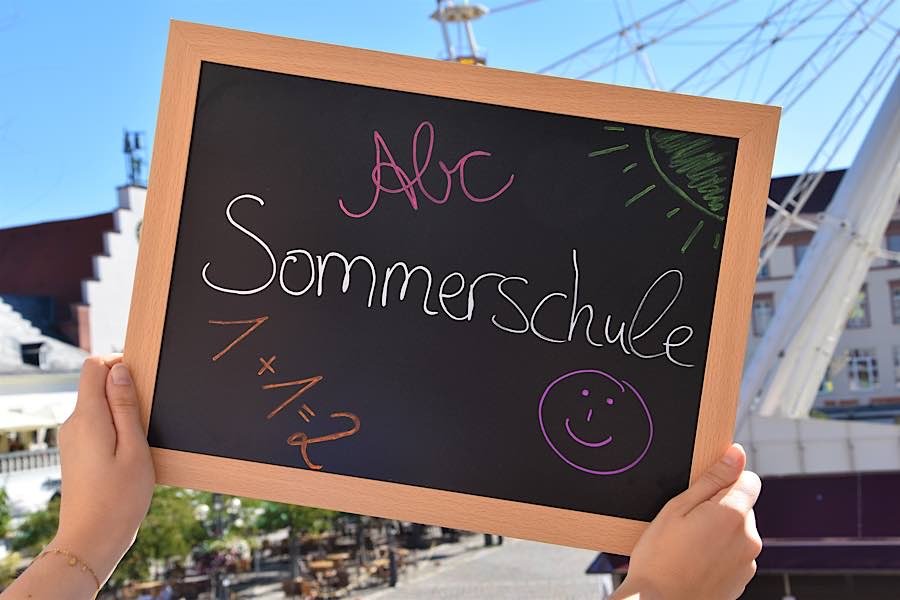 Abc
Sommerschule
1 x 1 = 2